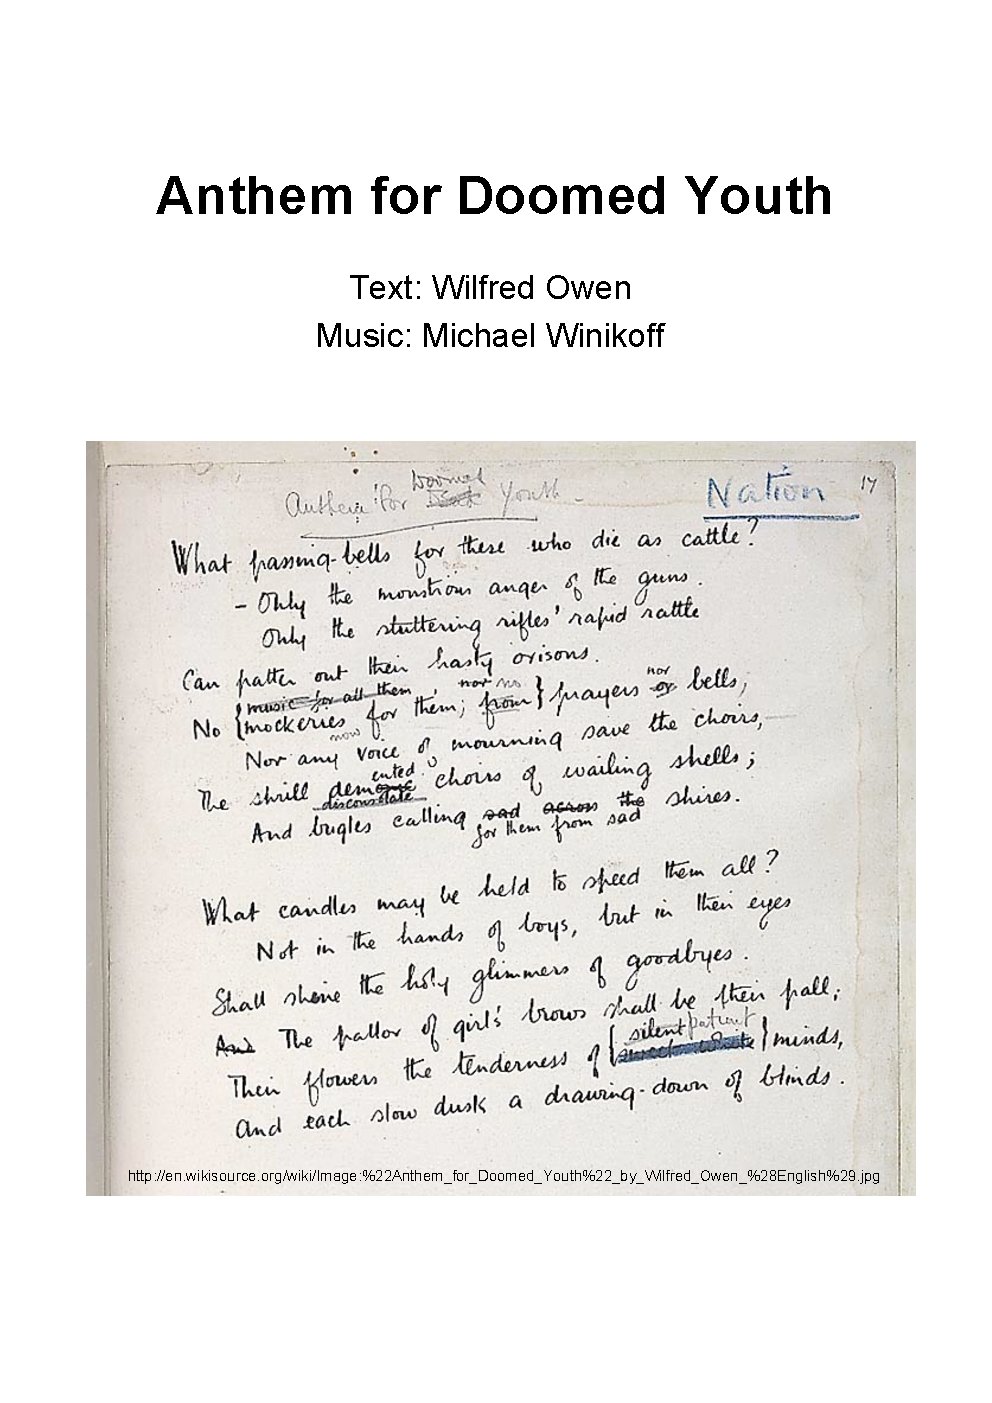 Anthem for Doomed Youth
Text: Wilfred Owen
Music: Michael Winikoff
Doomed
Anthem for Dead Youth
Nation
17
What passing-bells for these who die as cattle?
- Only the monstrous anger of the guns.
Only the stuttering rifles' rapid rattle
Can patter out their hasty orisons.
music for all them nor no nor
No { mockeries for them; from } prayers or bells,
now
Nor any voice of mourning save the choirs,
ented
The shrill demonic choirs of wailing shells;
disconsolate
And bugles calling sad across the shires.
for them from sad
What candles may be held to speed them all?
Not in the hands of boys, but in their eyes
Shall shine the holy glimmers of goodbyes.
And The pallor of girls' brows shall be their pall;
silent patient
Their flowers the tenderness of { } minds,
And each slow dusk a drawing-down of blinds.
http://en.wikisource.org/wiki/Image:%22Anthem_for_Doomed_Youth%22_by_Wilfred_Owen_%28English%29.jpg